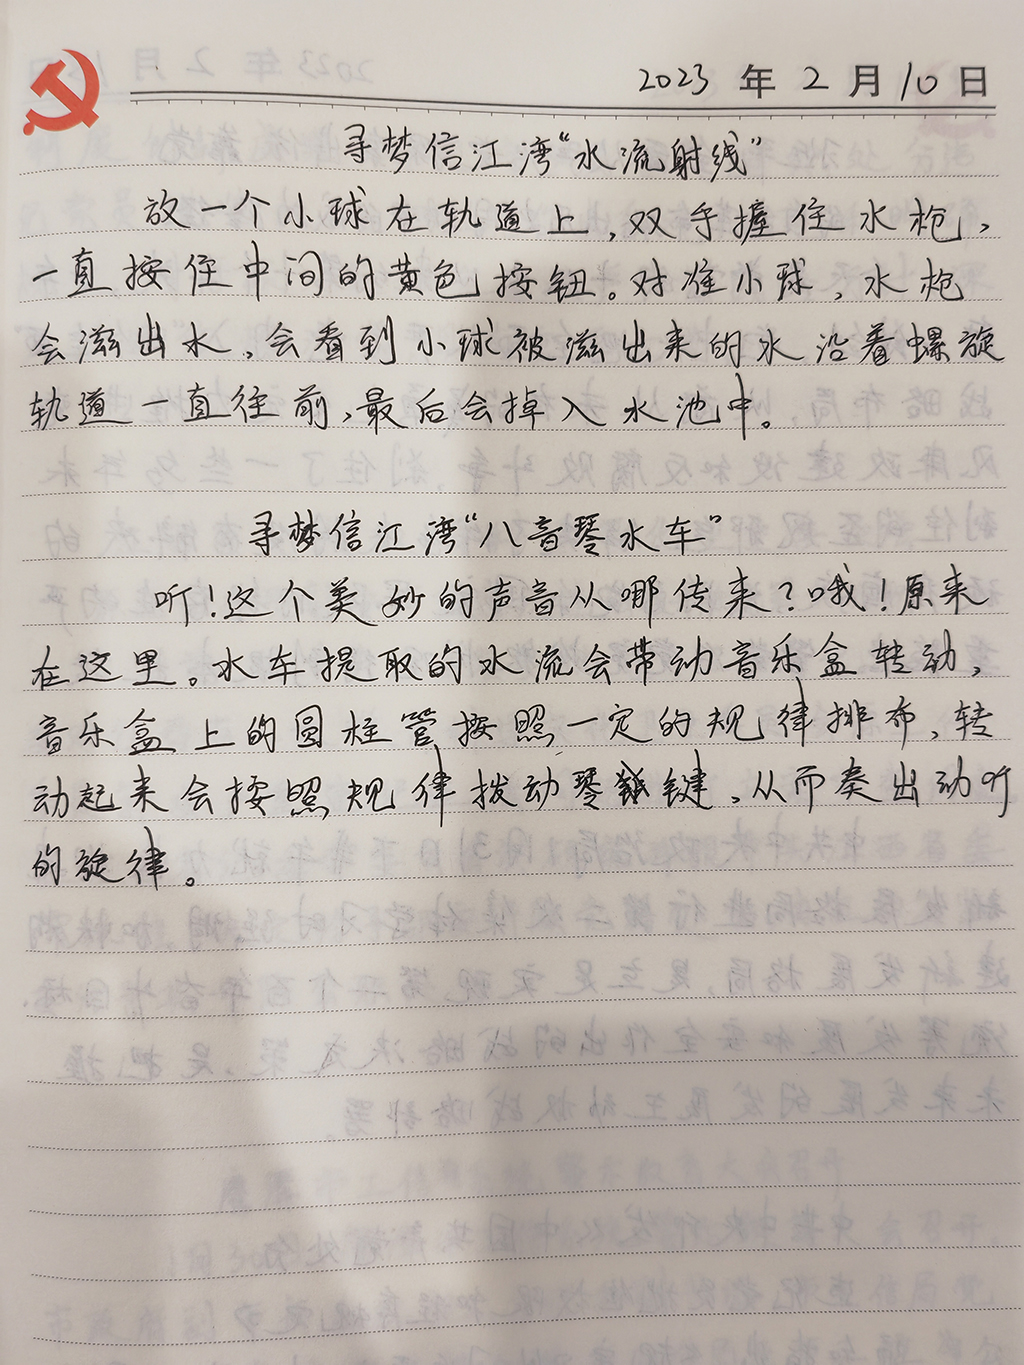 2023 年 2 月 10 日
寻梦信江湾“水流射线”
放一个小球在轨道上,双手握住水枪,
一直按住中间的黄色按钮。对准小球,水枪
会滋出水,会看到小球被滋出来的水沿着螺旋
轨道一直往前,最后会掉入水池中。
寻梦信江湾“八音琴水车”
听!这个美妙的声音从哪传来?哦!原来
在这里。水车提取的水流会带动音乐盒转动,
音乐盒上的圆柱管按照一定的规律排布,转
动起来会按照规律拨动琴键,从而奏出动听
的旋律。